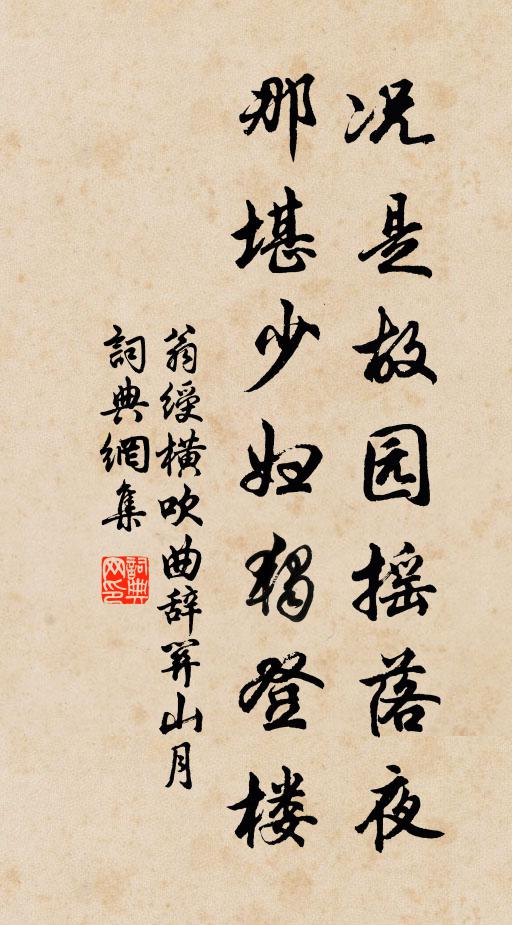 况是故园摇落夜
那堪少妇独登楼
翁绶横吹曲辞关山月
詞典網集
詞典网印